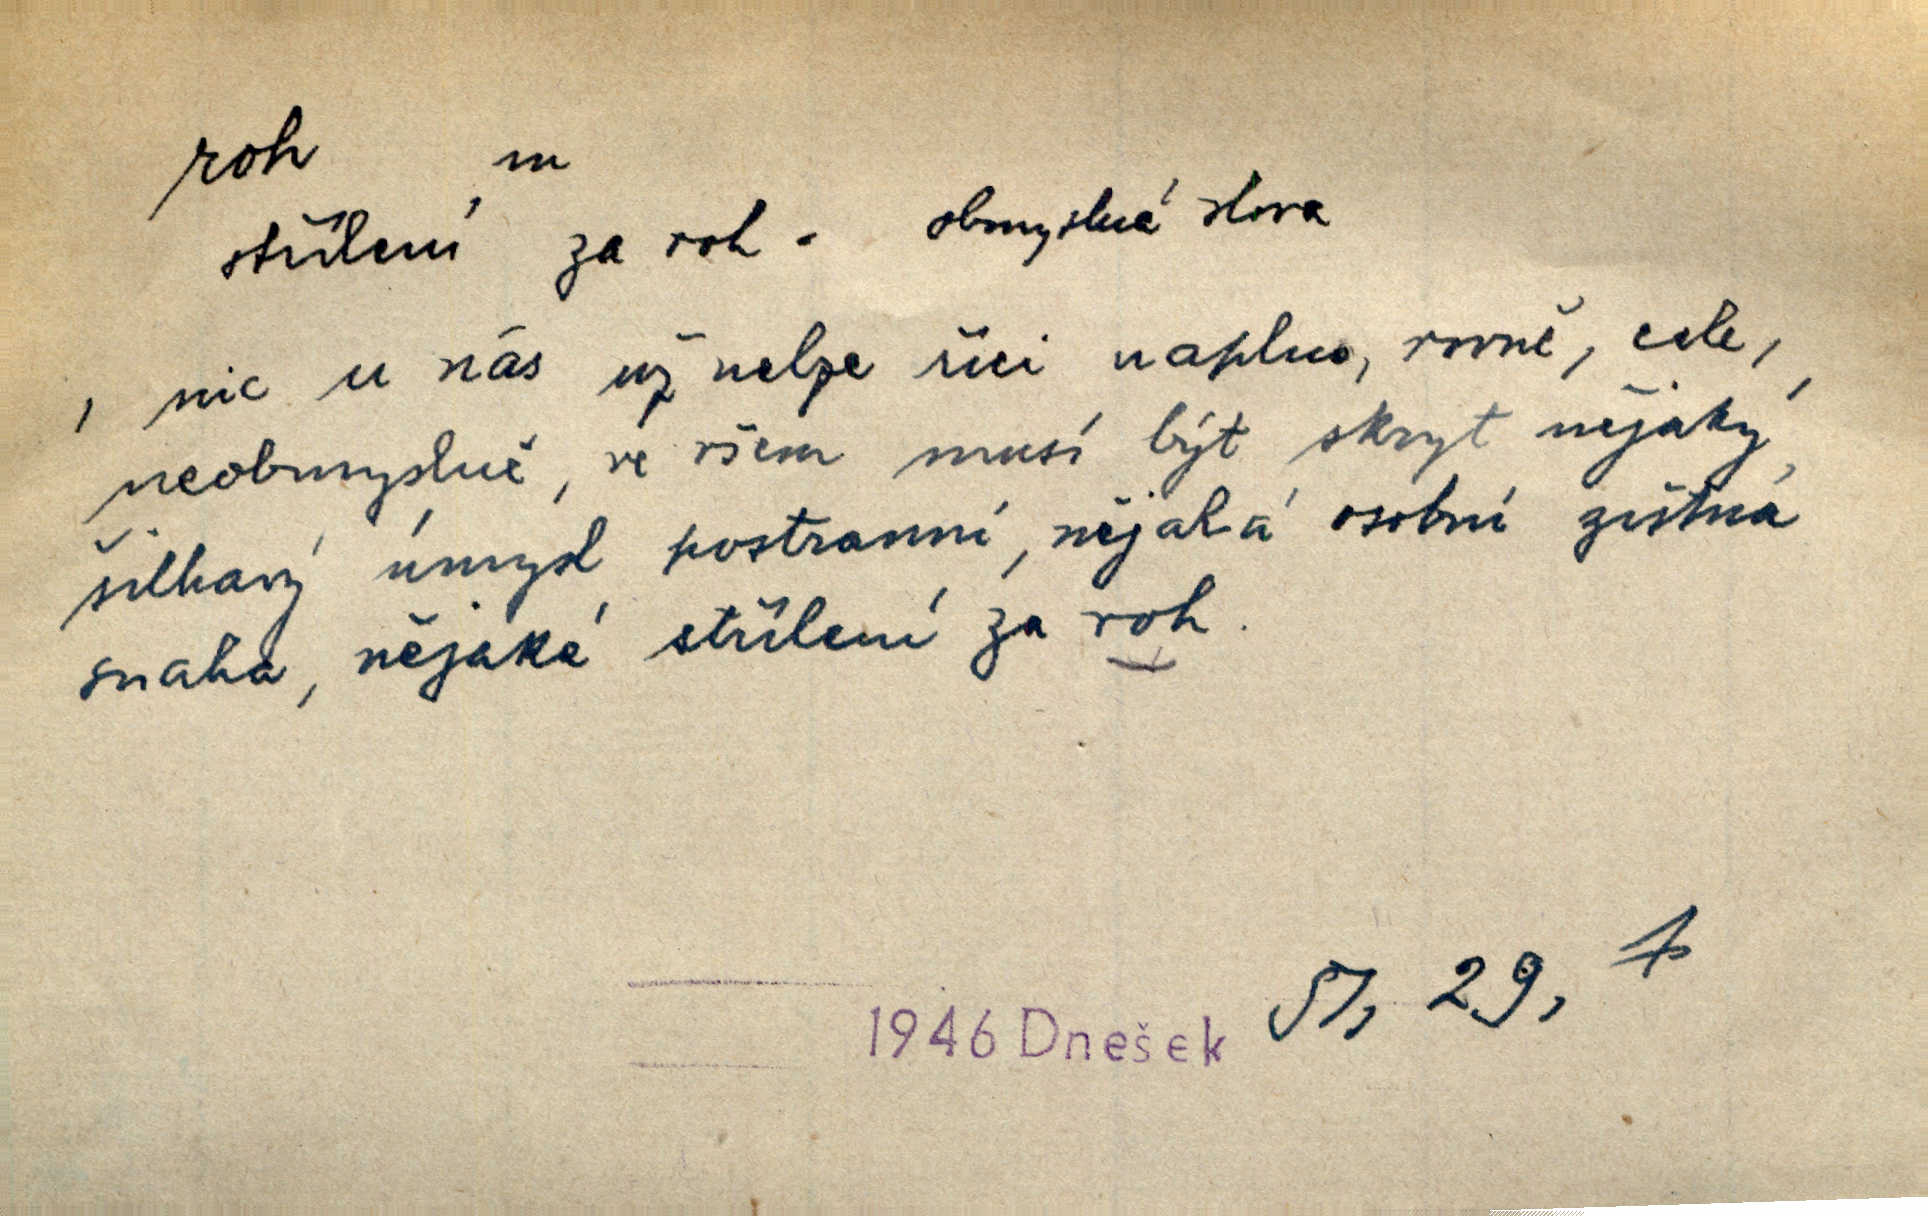 roh m
střílení za roh - obmyslná slova
, nic u nás už nelze říci naplno, rovně, cele,
neobmyslně, ve všem musí být skryt nějaký
šilhavý úmysl postranní, nějaká osobní zištná
snaha, nějaké střílení za roh.
1946 Dnešek 29,